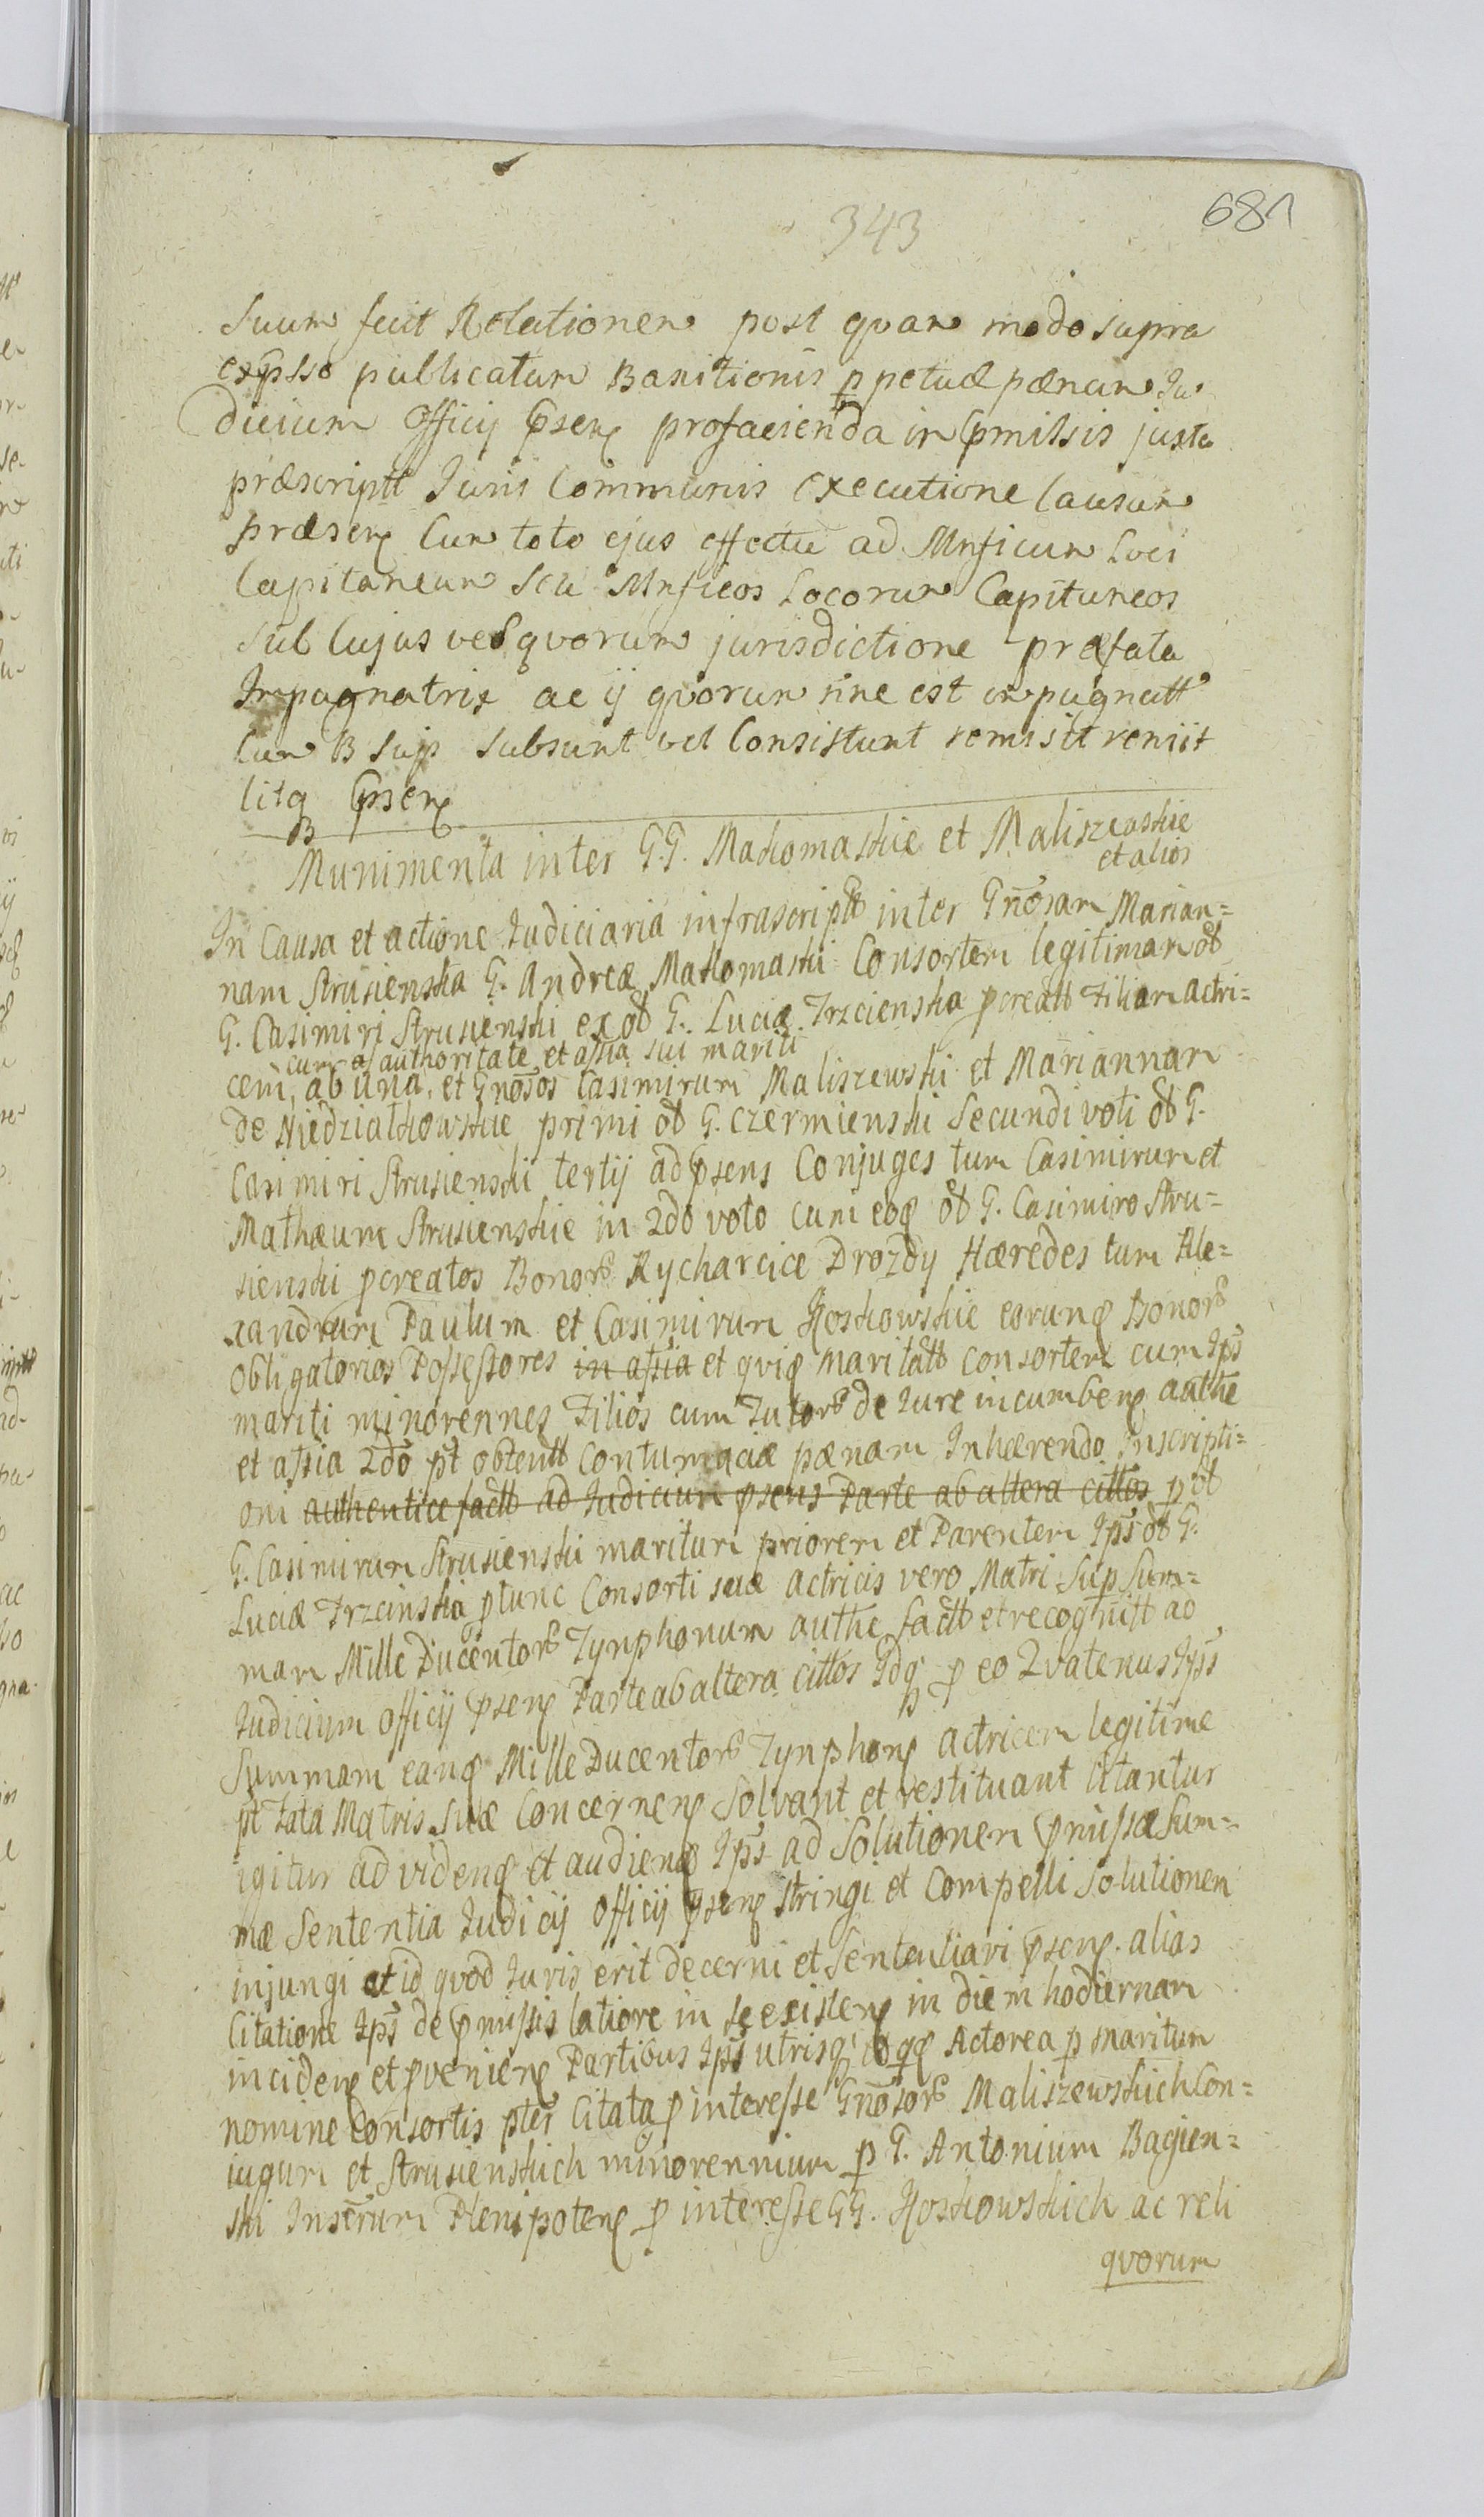 343
681
Suum fecit Relationem post quam modo supra
expsso publicatam Banitionis ppetuæ pænam Ju
dicium Officij Psen profacienda in Pmissis juxta
præscriptt Juris Communis executione Causam
præsen Cum toto ejus effectu ad Mnficum Loci
Capitaneum seu Mnficos Locorum Capitaneos
sub Cujus vel quorum jurisdictione præfata
Impugnatrix ac ij quorum nne est impugnatt
Cum B sup subsunt vel Consistunt remisit
litq Psen
Munimenta inter G.G. Makomaskie et Maliszewskie
et alios
In Causa et actione Judiciaria infrascriptt inter Gnosam Marian=
nam Strusienska G. Andreæ Makomaski Consortem legitimam ob
G. Casimiri Strusienski ex ob G. Luciæ Trzcienska pcreatt Filiam actri=
cum authoritate et assia sui mariti
cem, ab una, et Gnosos Casimirum Maliszewski et Mariannam
de Niedziatkowskie primi ob G. Czermienski Secundi voti ob G.
Casimiri Strusienski tertij ad psens Conjuges tum Casimirum et
Mathæum Strusienskie in 2do voto cum eoq ob G. Casimiro Stru=
sienski pcreatos Bonor Rycharcice Drozdy Hæredes tum Ale=
xandrum Paulum et Casimirum Hoskowskie eorunq Bonor
obligatorios Possessores in assia et qviq maritatt consortem cum Jps
mariti minorennes Filios cum Tutor de Jure incumben authe
et assia 2do pt obtentt Contumaciæ pænam Inhærendo Inscripti=
oni authentice factt ad Judicium psens Parte ab altera cittos p ob
G. Casimirum Strusienski maritum priorem et Parentem Jps ob G.
Luciæ Trzcinska ptunc Consorti suæ actricis vero Matri Sup Sum=
mam Mille Ducentor Tynphonum authe factt et recognitt ad
Judicium officij psen Parte ab altera cittos Idq p eo Qvatenus Jps
Summam eanq Mille Ducentor Tynphon actricem legitime
pt Fata Matris Suæ Concernen Solvant et restituant Citantur
igitur ad viden et audien Jps ad Solutionem pmissæ Sum=
mæ Sententia Judicij officij psen stringi et Compelli Solutionem
injungi et id qvod Juris erit decerni et Sententiari psen. alias
Citatione Jps de pmissis latiore in se existen in diem hodiernam
inciden et pvenien Partibus Jps utrisq Actorea p maritum
nomine Consortis pter Citata p interesse Gnosor Maliszewskich Con=
iugum et Strusienskich minorennium p G. Antonium Bagien=
ski Instrum Plenipoten p interesse GG. Hoskowskich ac reli
qvorum